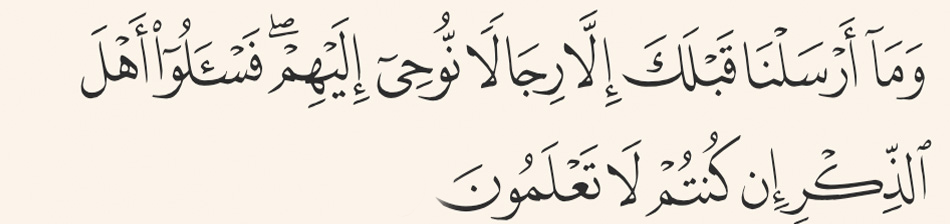 وَمَآ أَرْسَلْنَا قَبْلَكَ إِلَّا رِجَالًا نُّوحِىٓ إِلَيْهِمْ ۖ فَسْـَٔلُوٓا۟ أَهْلَ
ٱلذِّكْرِ إِن كُنتُمْ لَا تَعْلَمُونَ